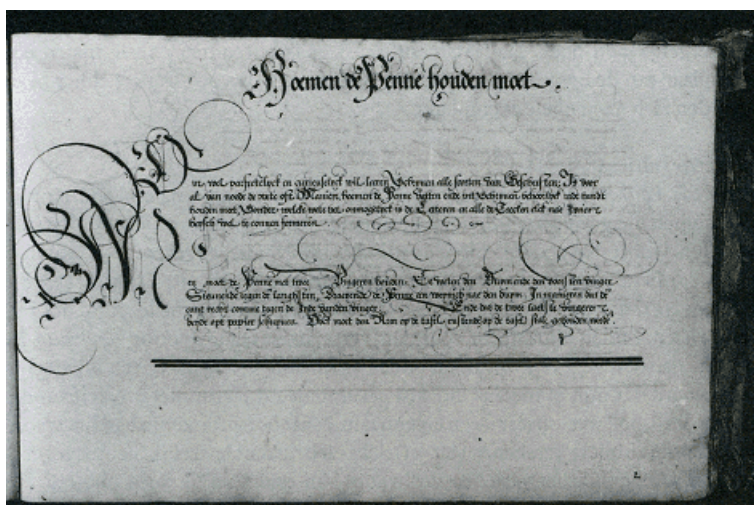 Hoemen de Penne houden moet.
wel perfectelyck en curieuselyck wil leeren Schryven alle soorten van Geschriften, Is voor
al van noode de rechte oft Manieri, hoemen de Penne vatten ende int Schryven behoorlyck inde handt
houden moet, Sonder welcke wete het onmogelyck is de Letteren en alle de
wel te connen formeren.
moet de Penne met twee Vingeren houden, Te weten den Duym ende den voorsten vinger
Steunende tegen de langhsten, Draeyende de Penne een weynich nae den duym. In manieren dat de
cant recht comme tegen de vanden vinger, Ende dat de twee
beyde opt papier. Oock moet den Arm op de tafel, rustende op de tafel stille gehouden werde.
2.